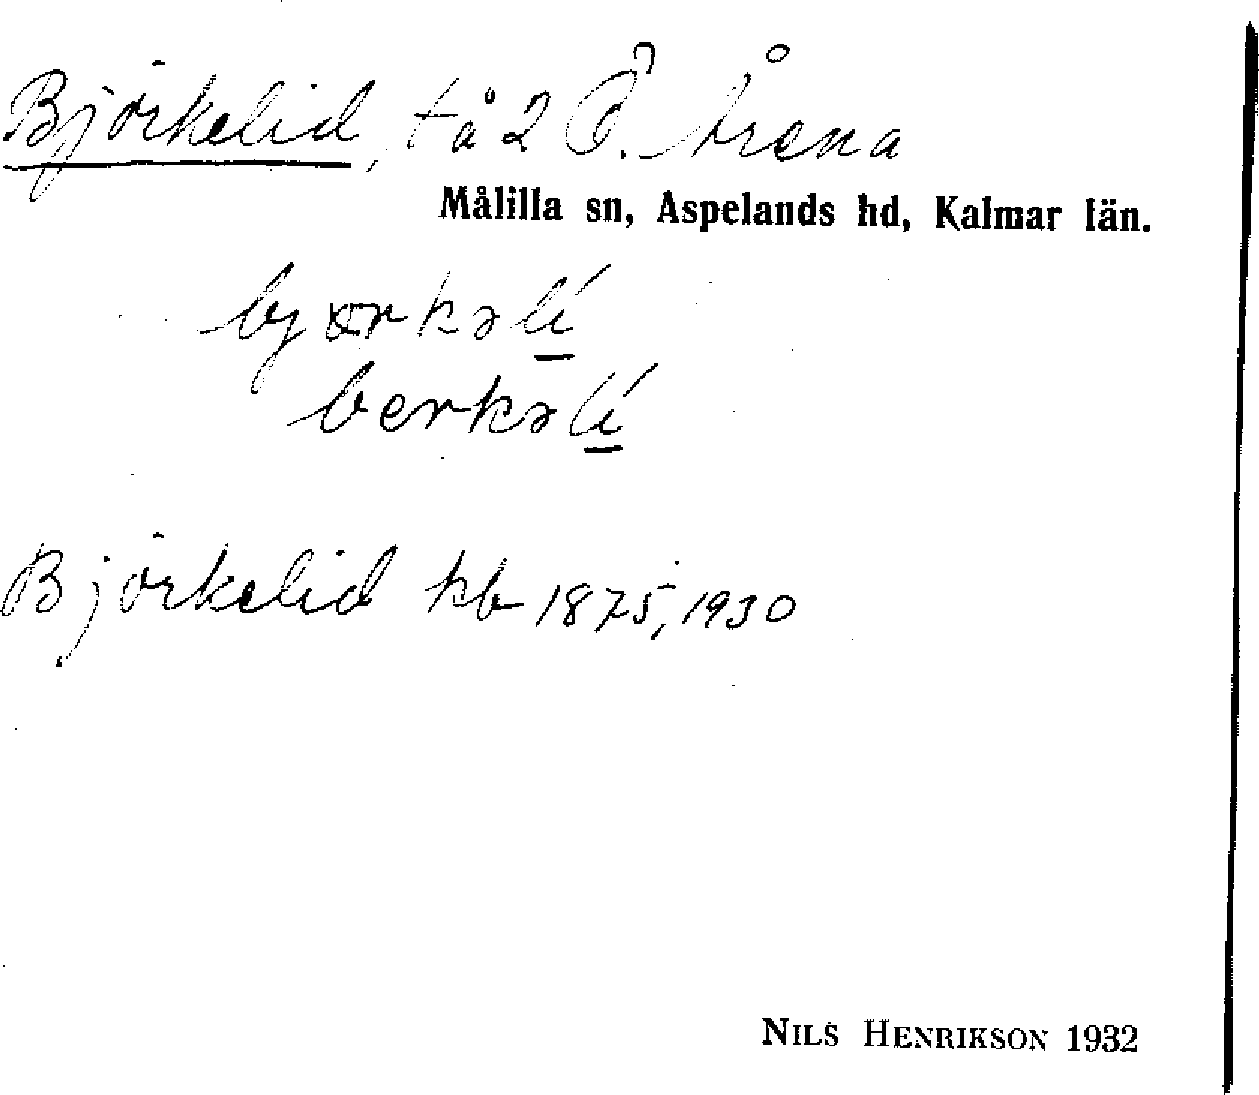 Björkelid, tå 2 Ö. Årena
Målilla sn, Aspelands hd, Kalmar län.
bjœrkəlí
berkəlí
Björkelid kb 1875, 1930
NILS HENRIKSON 1932